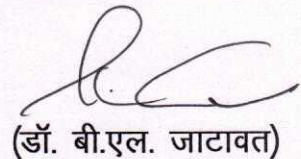 (डॉ. बी.एल. जाटावत)